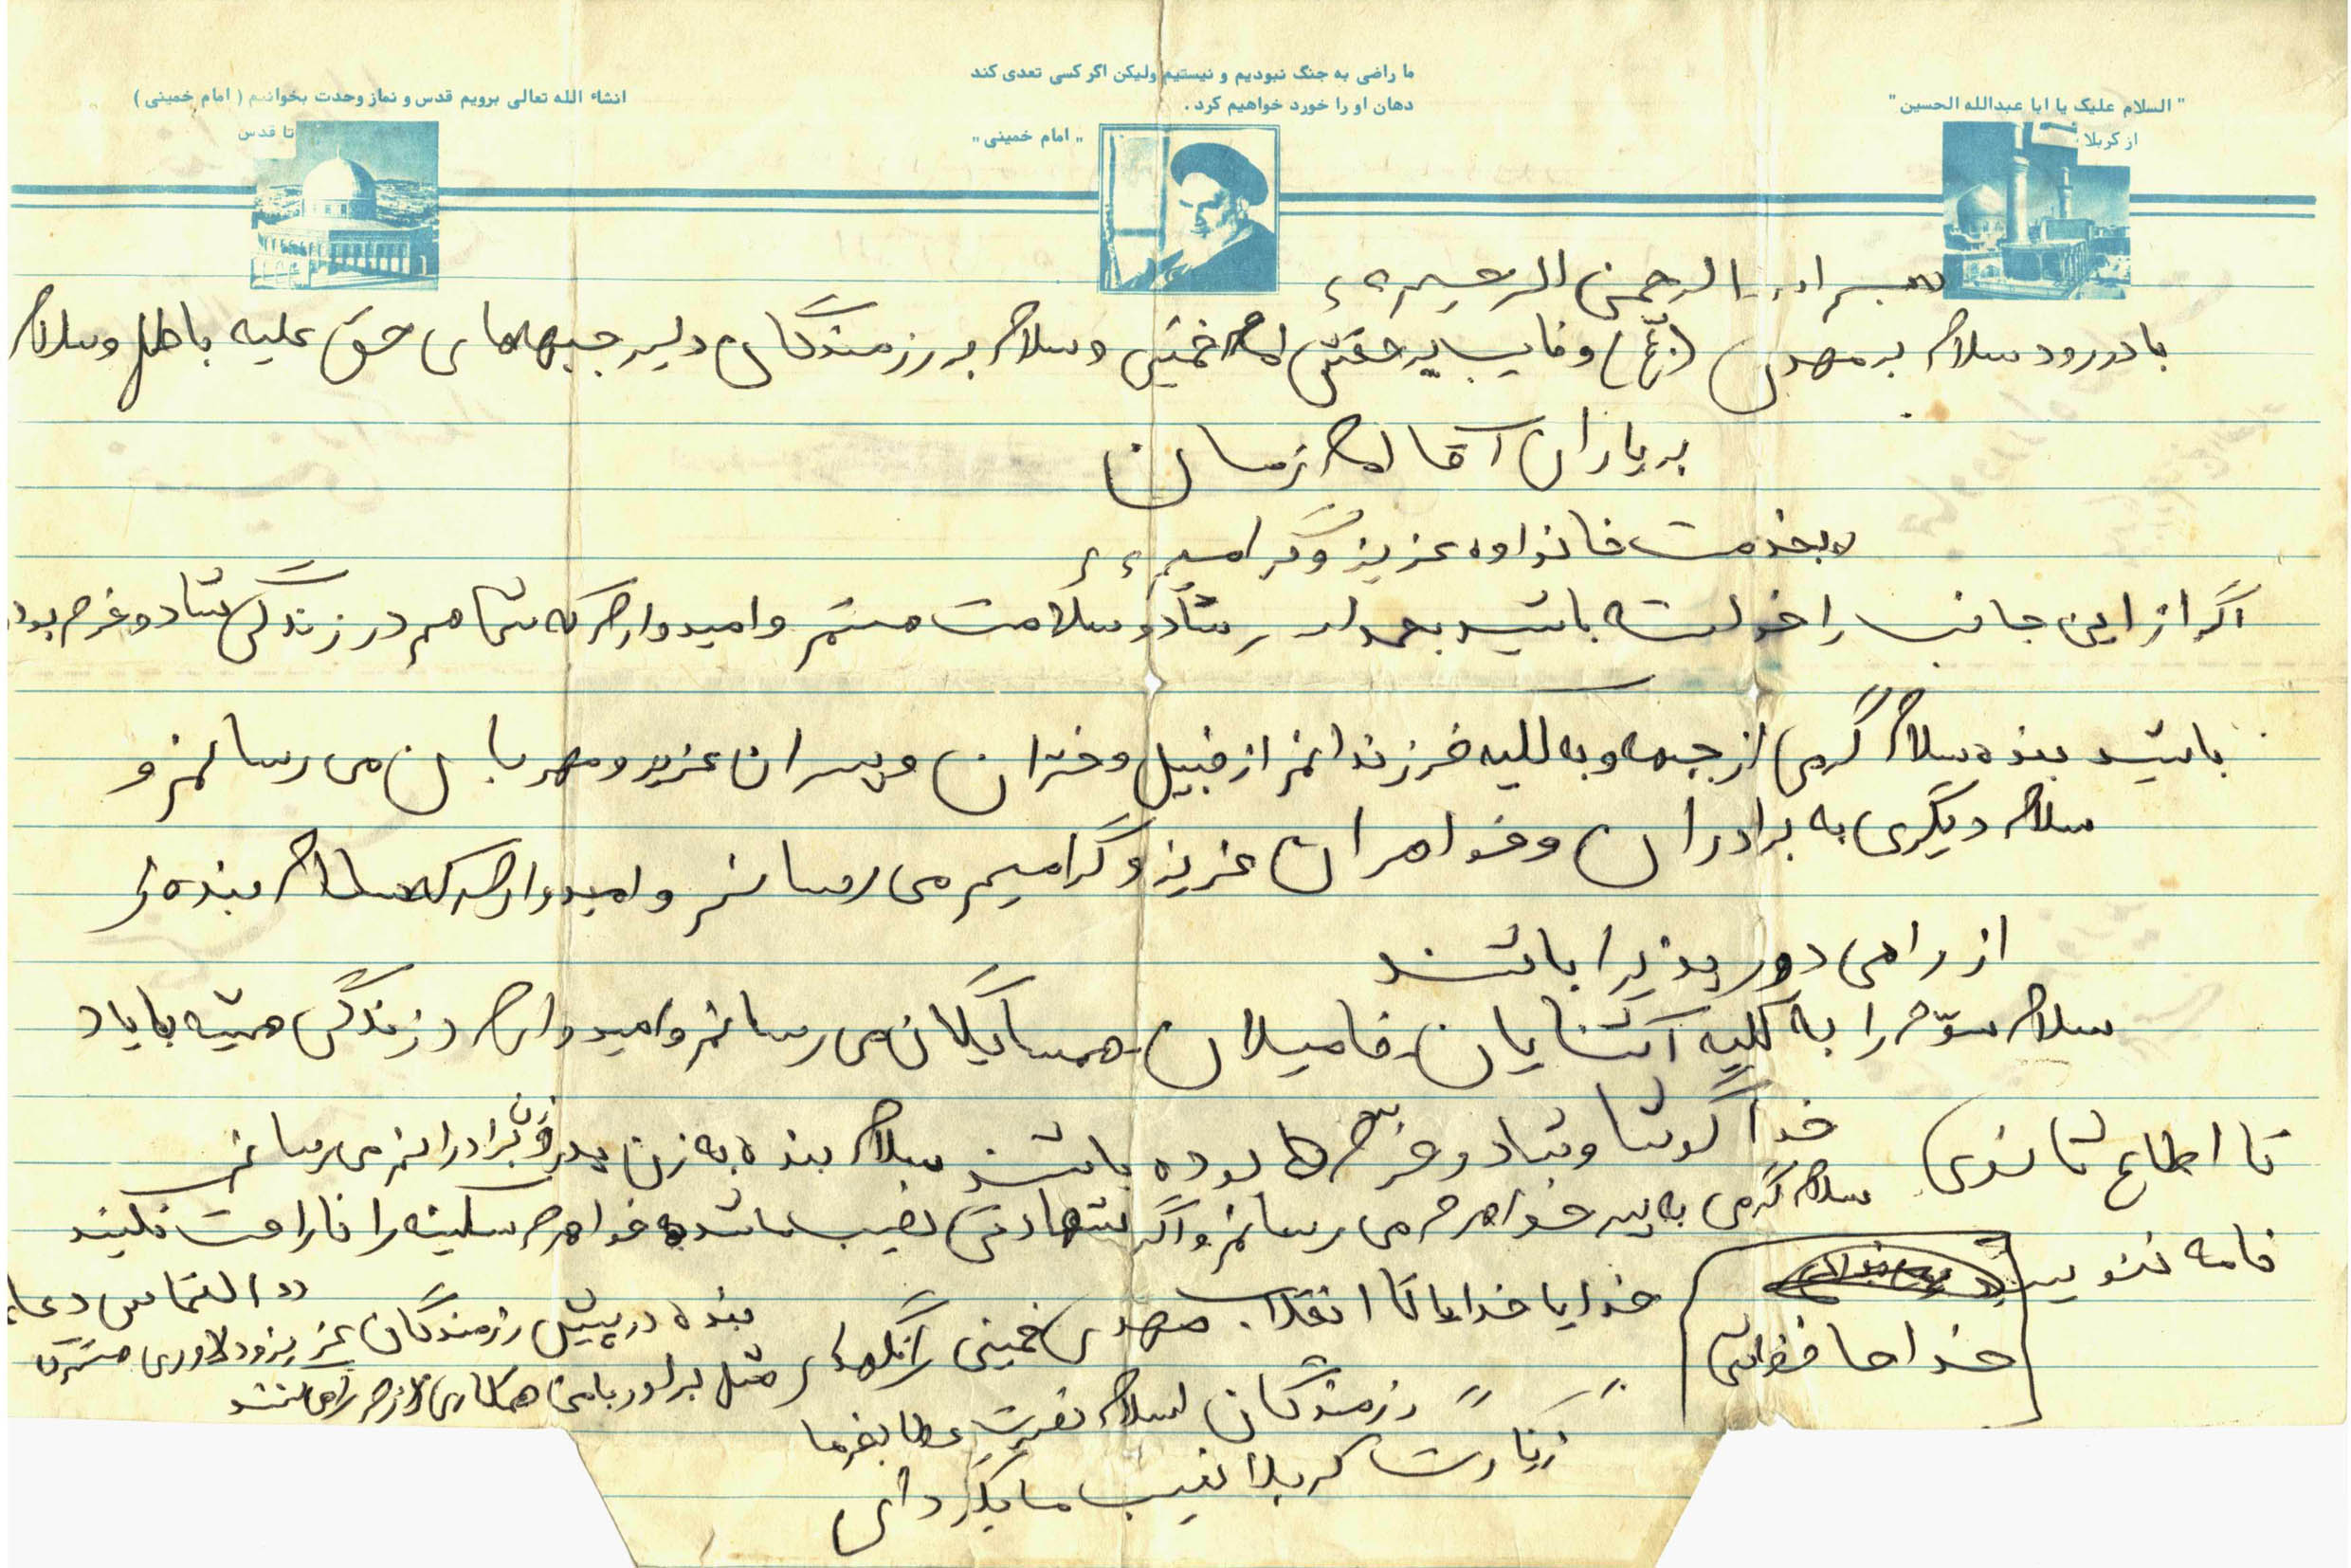 "السلام علیک یا ابا عبدالله الحسین"
از کربلا
ما راضی به جنگ نبودیم و نیستیم ولیکن اگر کسی تعدی کند
دهان او را خورد خواهیم کرد.
"امام خمینی"
انشاء الله تعالی برویم قدس و نماز وحدت بخوانیم (امام خمینی)
تا قدس
بسم الله الرحمن الرحیم
با درود سلام بر مهدی (عج) و نایب بر حقش امام خمینی و سلام بر رزمندگان دلیر جبهه های حق علیه باطل و سلام
بر یاران آقا امام زمان
بخدمت خانواده عزیز و گرامیم
اگر از این جانب را خواسته باشید بحمدالله شاد و سلامت هستم و امیدوارم که شما هم در زندگی شاد و خرم بوده
باشید بنده سلام گرمی از جبهه و به کلیه فرزندانم از قبیل دختران و پسران عزیز و مهربان می رسانم و
سلام دیگری به برادران و خواهران عزیز و گرامیم می رسانم و امیدوارم که سلام بنده را
از راهی دور پذیرا باشند
سلام سوم را به کلیه آشنایان، فامیلان، همسایگان می رسانم و امیدوارم در زندگی همیشه با یاد
خدا کوشا و شاد و خرم بوده باشند سلام بنده به زن برادرانم می رسانم
تا اطلاع ثانوی
سلام گرمی به پسر خواهرم می رسانم و اگر شهادتی نصیب ما شد خواهرم سکینه را ناراحت نکنید
نامه ننویسید
خداحافظ
خدایا خدایا تا انقلاب مهدی خمینی را نگهدار
"التماس دعا"
بنده در پیش رزمندگان عزیز و دلاوری هستم که
مثل برادر با من همکاری لازم را می کنند
رزمندگان اسلام نصرت عطا بفرما
زیارت کربلا نصیب ما بگردان